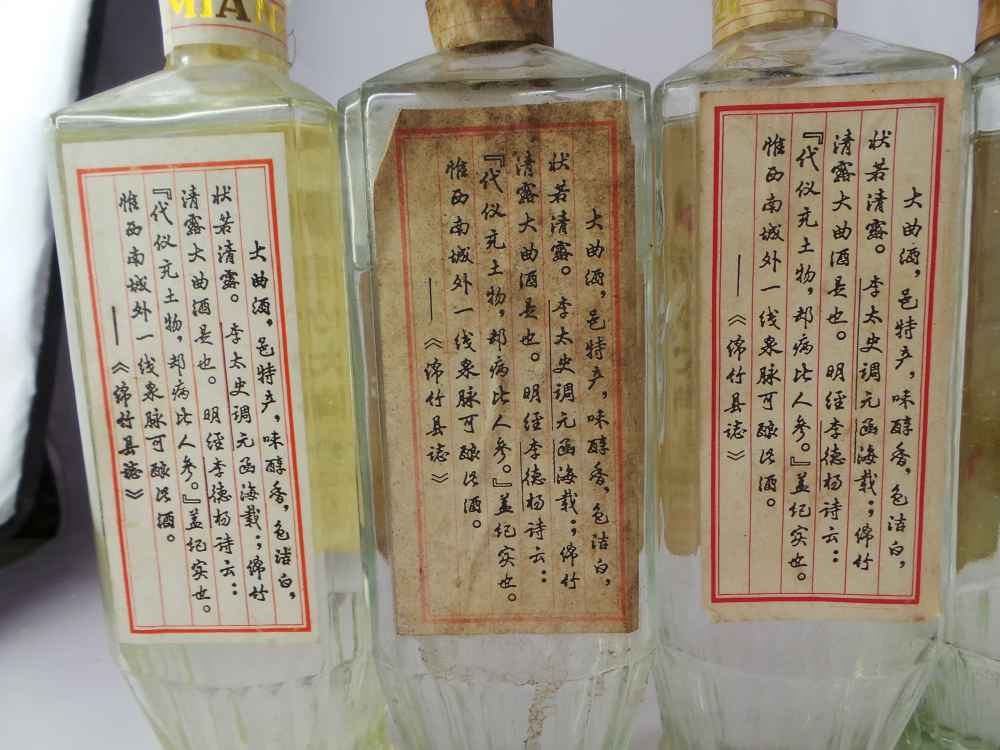 MIAN
大曲酒，邑特产，味醇香，色洁白，
状若清露。李太史调元函海载；绵竹
清露大曲酒是也。明经李德杨诗云：
『代仪充土物，却病比人参。』盖纪实也。
惟西南城外一线泉脉可酿此酒。
——《绵竹县誌》
大曲酒，邑特产，味醇香，色洁白，
状若清露。李太史调元函海载；绵竹
清露大曲酒是也。明经李德杨诗云：
『代仪充土物，却病比人参。』盖纪实也。
惟西南城外一线泉脉可酿此酒。
——《绵竹县誌》
大曲酒，邑特产，味醇香，色洁白，
状若清露。李太史调元函海载；绵竹
清露大曲酒是也。明经李德杨诗云：
『代仪充土物，却病比人参。』盖纪实也。
惟西南城外一线泉脉可酿此酒。
——《绵竹县誌》